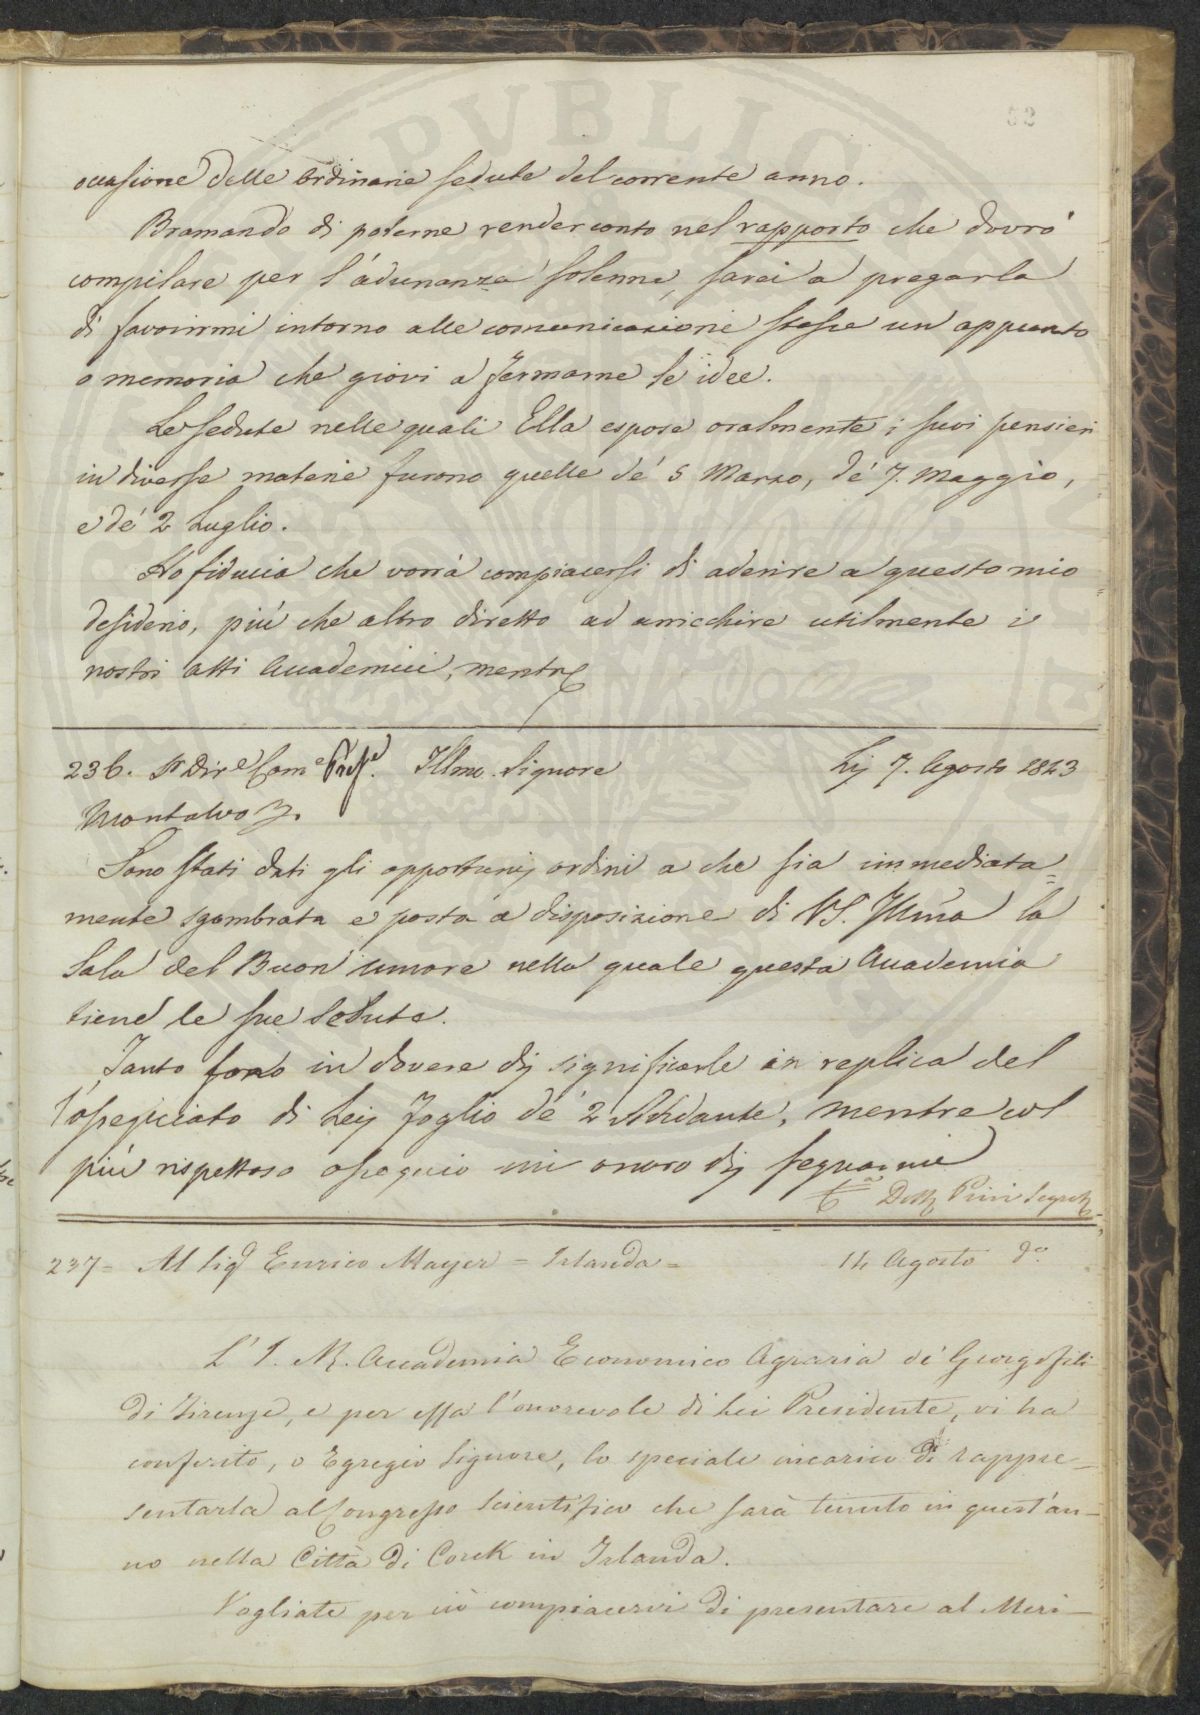 52
occasione delle ordinarie sedute del corrente anno.
Bramando di poterne render conto nel rapporto che dovrò
compilare per l'adunanza solenne, sarei a pregarla
di favorirmi intorno alle comunicazioni stesse un appunto
o memoria che giovi a fermarne le idee.
Le sedute nelle quali Ella espose oralmente i suoi pensieri
in diverse materie furono quelle de' 5 Marzo, de' 7. Maggio,
e de' 2 Luglio.
Ho fiducia che vorrà compiacersi di aderire a questo mio
desiderio, più che altro diretto ad arricchire utilmente i
nostri atti Accademici, mentre
236. Sr Dire Come Prese. Illmo. Signore Li 7. Agosto 1843
Montalvo
Sono stati dati gli opportunij ordini a che sia immediata=
mente sgombrata e posta a disposizione di VS. Illma la
Sala del Buon'umore nella quale questa Accademia
tiene le sue Sedute.
Tanto sono in dovere dij significarle in replica del
l'ossequiato di Leij foglio de' 2 Andante, mentre col
più rispettoso ossequio mi onoro dij segnarmi
Dott. Segret
237= Al Sigr Enrico Mayer = Irlanda = 14 Agosto do.
L'I. R. Accademia Economico Agraria de' Georgofili
di Firenze, e per essa l'onorevole di Lei Presidente, vi ha
conferito, o Egregio Signore, lo speciale incarico di rappre=
sentarla al Congresso Scientifico che sarà tenuto in quest'an=
no nella Città di Corck in Irlanda.
Vogliate per ciò compiacervi di presentare al Meri=